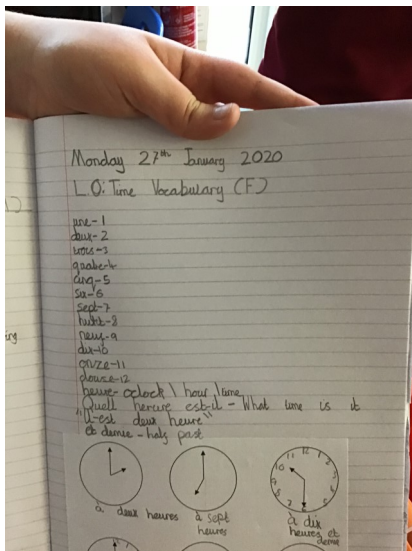 Monday 27th January 2020
L.O: Time Vocabulary (F)
une-1
deux-2
trois-3
quatre-4
cinq-5
six-6
sept-7
huit-8
neuf-9
dix-10
onze-11
douze-12
heure- oclock \ hour \ time
"Quell heure est-il - What time is it
"il-est deux heure"
et demie - half past
12
11
1
10
2
9
3
8
4
7
5
6
à deux heures
à sept heures
à dix heures et demie
ing